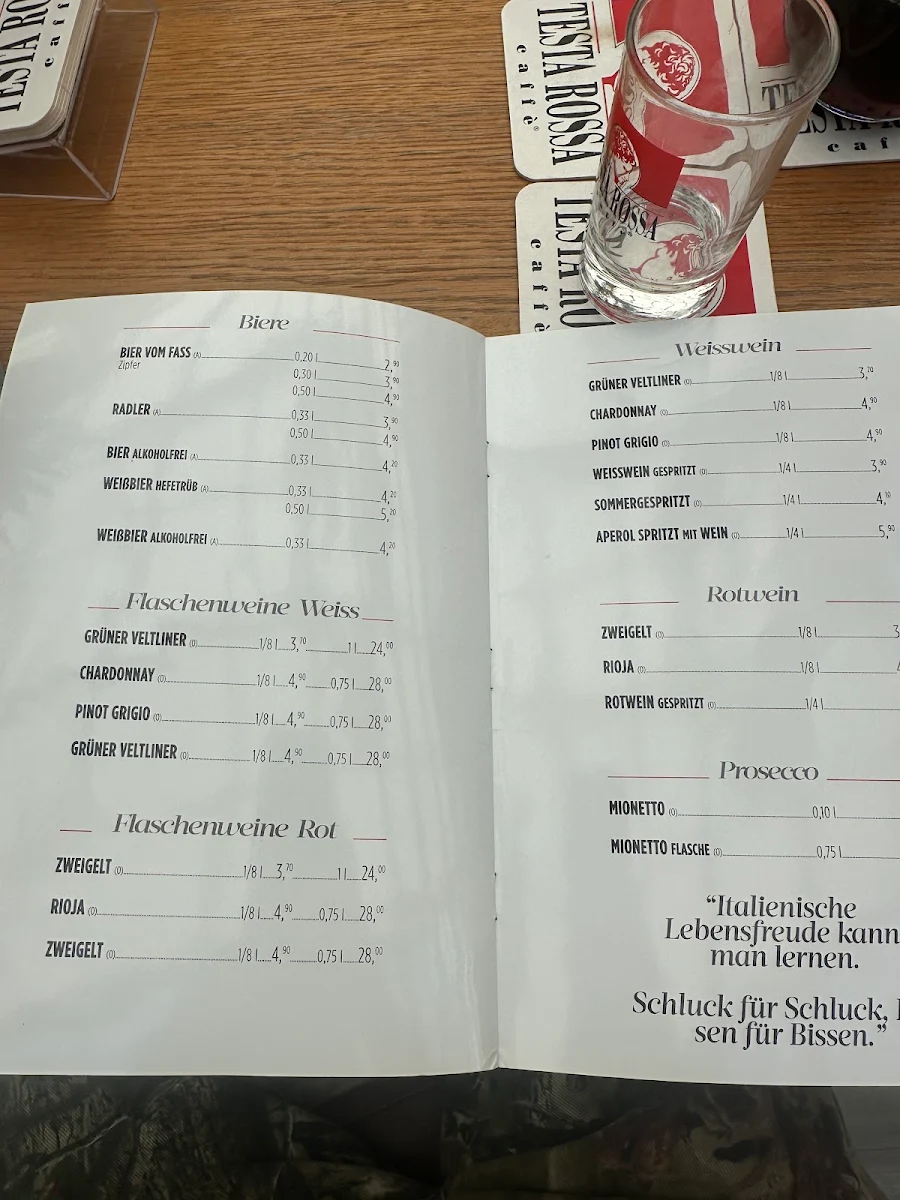 TESTA RO
caff
TESTA ROSSA
caffè®
TESTA RO
caffè
ROSSA
caf
Biere
BIER VOM FASS (A) 0,20 l 2,90
Zipfer
0,30 l 3,90
0,50 l 4,90
RADLER (A) 0,33 l 3,90
0,50 l 4,90
BIER ALKOHOLFREI (A) 0,33 l 4,20
WEIßBIER HEFETRÜB (A) 0,33 l 4,20
0,50 l 5,20
WEIßBIER ALKOHOLFREI (A) 0,33 l 4,20
Flaschenweine Weiss
GRÜNER VELTLINER (O) 1/8 l 3,70 1 l 24,00
CHARDONNAY (O) 1/8 l 4,90 0,75 l 28,00
PINOT GRIGIO (O) 1/8 l 4,90 0,75 l 28,00
GRÜNER VELTLINER (O) 1/8 l 4,90 0,75 l 28,00
Flaschenweine Rot
ZWEIGELT (O) 1/8 l 3,70 1 l 24,00
RIOJA (O) 1/8 l 4,90 0,75 l 28,00
ZWEIGELT (O) 1/8 l 4,90 0,75 l 28,00
Weisswein
GRÜNER VELTLINER (O) 1/8 l 3,70
CHARDONNAY (O) 1/8 l 4,90
PINOT GRIGIO (O) 1/8 l 4,90
WEISSWEIN GESPRITZT (O) 1/4 l 3,90
SOMMERGESPRITZT (O) 1/4 l 4,10
APEROL SPRITZ MIT WEIN (O) 1/4 l 5,90
Rotwein
ZWEIGELT (O) 1/8 l 3
RIOJA (O) 1/8 l
ROTWEIN GESPRITZT (O) 1/4 l
Prosecco
MIONETTO (O) 0,10 l
MIONETTO FLASCHE (O) 0,75 l
“Italienische
Lebensfreude kann
man lernen.
Schluck für Schluck,
sen für Bissen.”